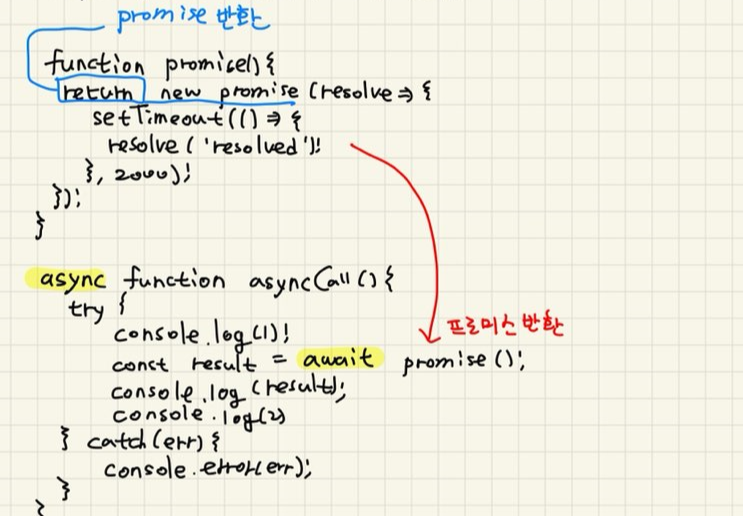 promise 반환
function promise(){
return new promise (resolve => {
setTimeout(() => {
resolve ('resolved');
}, 2000);
});
}
async function asyncCall () {
try {
console.log(1);
const result = await promise ();
프로미스 반환
console.log (result);
console.log(2)
} catch (err) {
console.error(err);
}
}